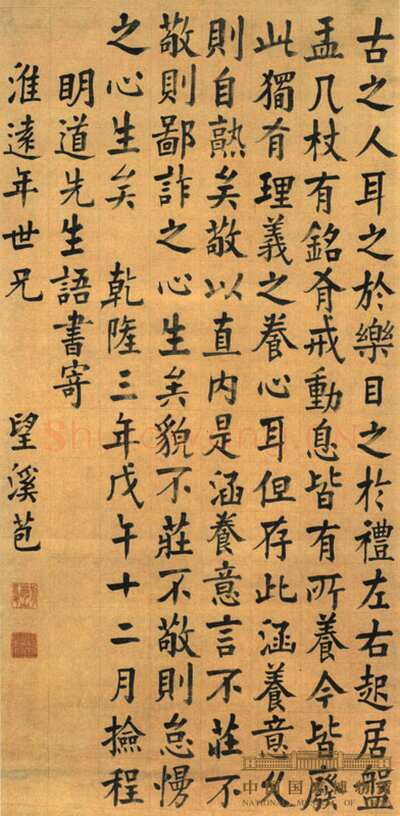 古之人耳之於樂目之於禮左右起居盤
盂几杖有銘有戒動息皆有所養今皆廢
此獨有理義之養心耳但存此涵養意久
則自熟矣敬以直内是涵養意言不莊不
敬則鄙詐之心生矣貌不莊不敬則怠慢
之心生矣 乾隆三年戊午十二月撿程
明道先生語書寄
淮遠年世兄 望溪苞
NATIONAL MUSEUM OF